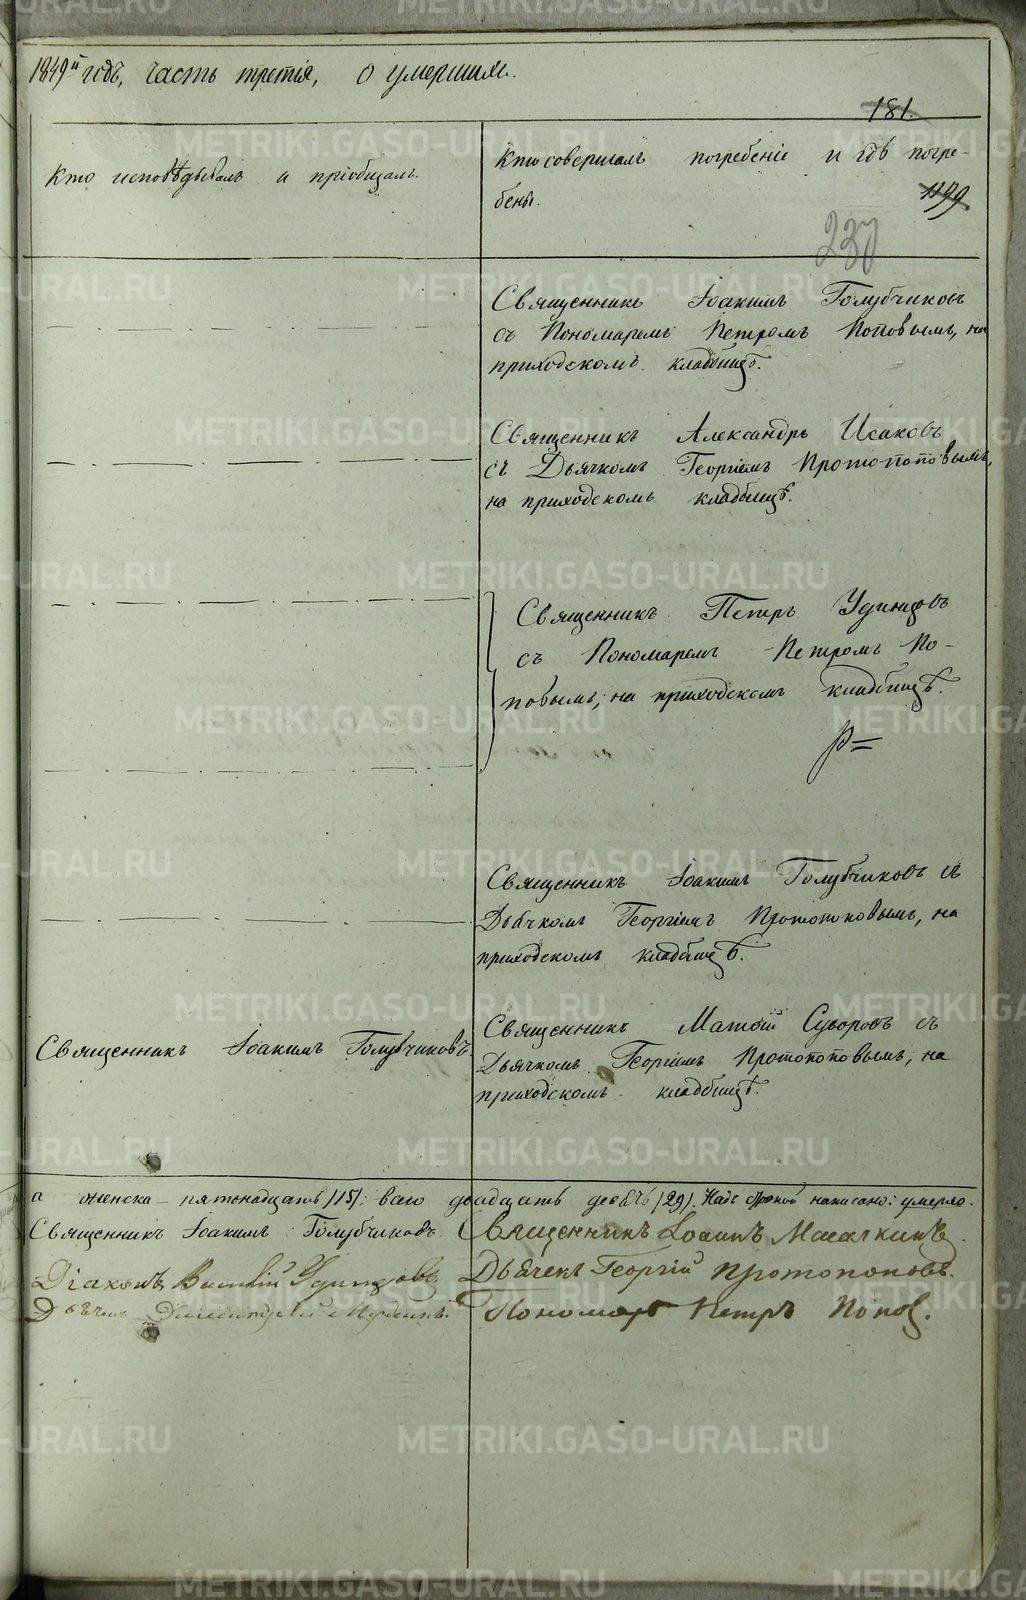 1849й годъ, часть третія, о умершихъ.
181.
Кто исповѣдывалъ и пріобщалъ.
Кто совершалъ погребеніе и гдѣ погре-
бены.
1199
237
Священникъ Іоакимъ Голубчиковъ
съ Пономаремъ Петромъ Поповымъ, на
приходскомъ кладбищѣ.
Священникъ Александръ Исаковъ
съ Дьячкомъ Георгіемъ Протопоповымъ,
на приходскомъ кладбищѣ.
Священникъ Петръ Удинцовъ
съ Пономаремъ Петромъ По-
повымъ, на приходскомъ кладбищѣ.
Священникъ Іоакимъ Голубчиковъ съ
Дьячкомъ Георгіемъ Протопоповымъ, на
приходскомъ кладбищѣ.
Священникъ Іоакимъ Голубчиковъ
Священникъ Матѳій Суворовъ съ
Дьячкомъ Георгіемъ Протопоповымъ, на
приходскомъ кладбищѣ.
а женска пятьнадцать /15/: всего двадцать девѣть /29/. Надъ строкой написано: умерло.
Священникъ Іоакимъ Голубчиковъ.
Священникъ Іоаннъ
Діаконъ Василій Удинцовъ
Дьячекъ Георгій Протопоповъ.
Дьячекъ
Пономарь Петръ Поповъ.
METRIKI.GASO-URAL.RU